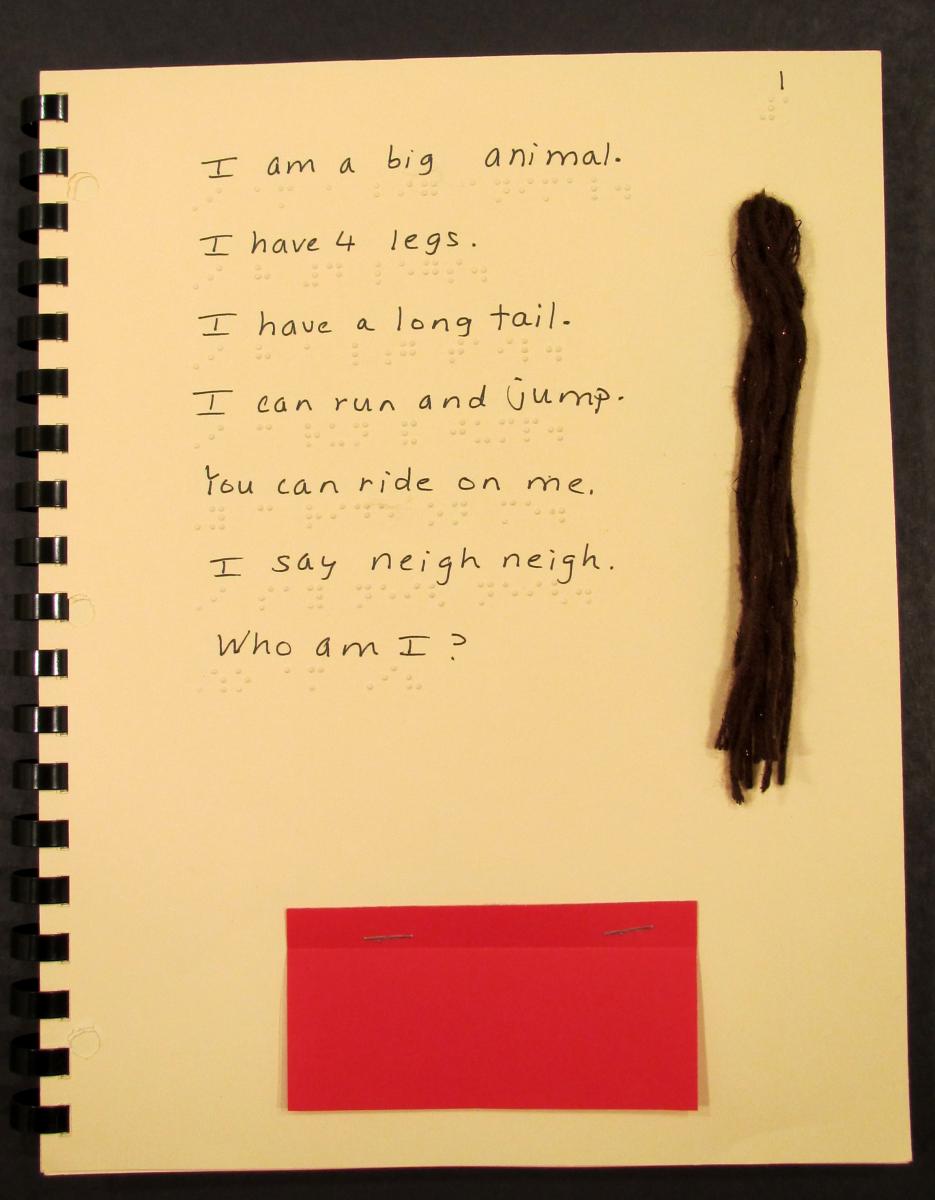 1
I am a big animal.
I have 4 legs.
I have a long tail.
I can run and jump.
You can ride on me.
I say neigh neigh.
Who am I?